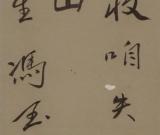 收咱失
山
生馮玉